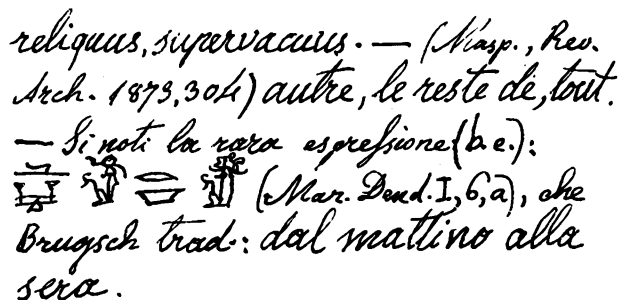 reliquus, supervacuus. — (Masp., Rev.
Arch. 1873, 304) autre, le reste de, tout.
— Si noti la rara espressione (b.e.):
(Mar. Dend. I, 6, a), che
Brugsch trad.: dal mattino alla
sera.